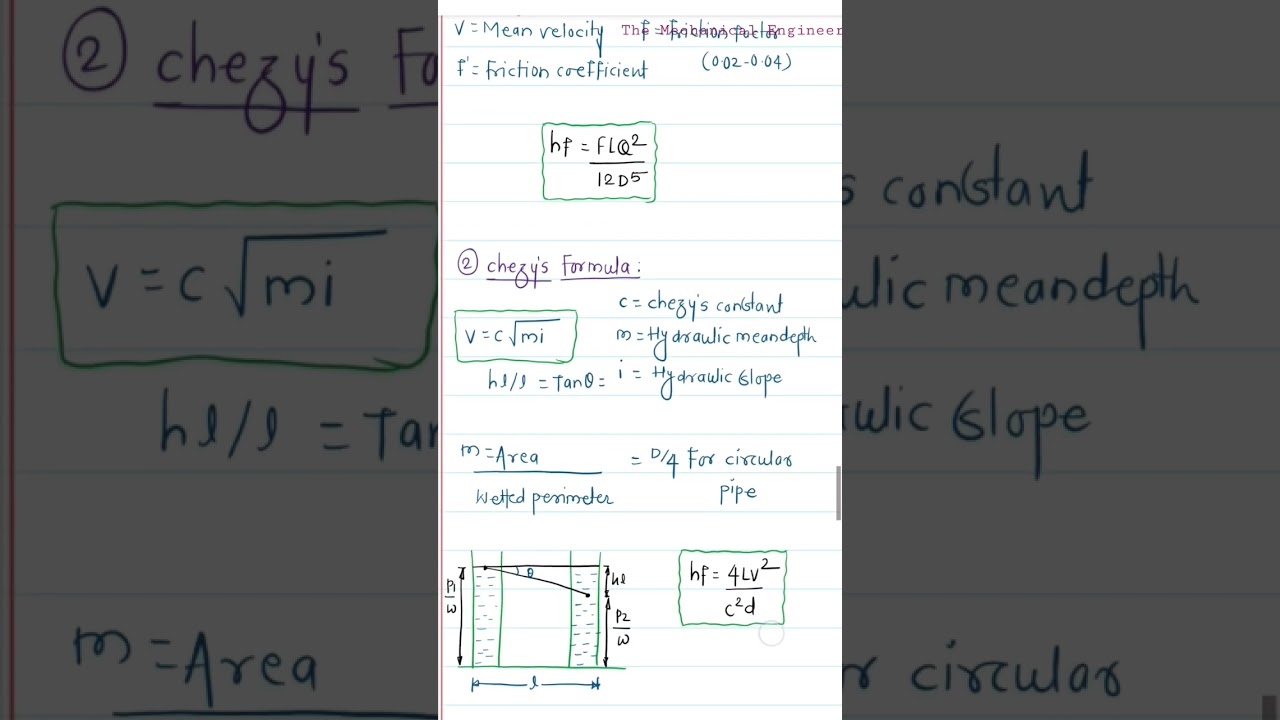 V = Mean velocity f = Friction factor
The Mechanical Engineer
f' = Friction coefficient (0.02-0.04)
hf = FLQ²
12D⁵
② chezy's Formula:
c = chezy's constant
V = C√mi
m = Hydraulic meandepth
hl/l = Tanθ = i = Hydraulic slope
m = Area = D/4 For circular
Wetted perimeter pipe
θ
hl
P1
w
P2
w
l
hf = 4LV²
c²d
② chezy's Fo
V = C√mi
hl/l = Tan
m = Area
s constant
ulic meandepth
wlic slope
r circular